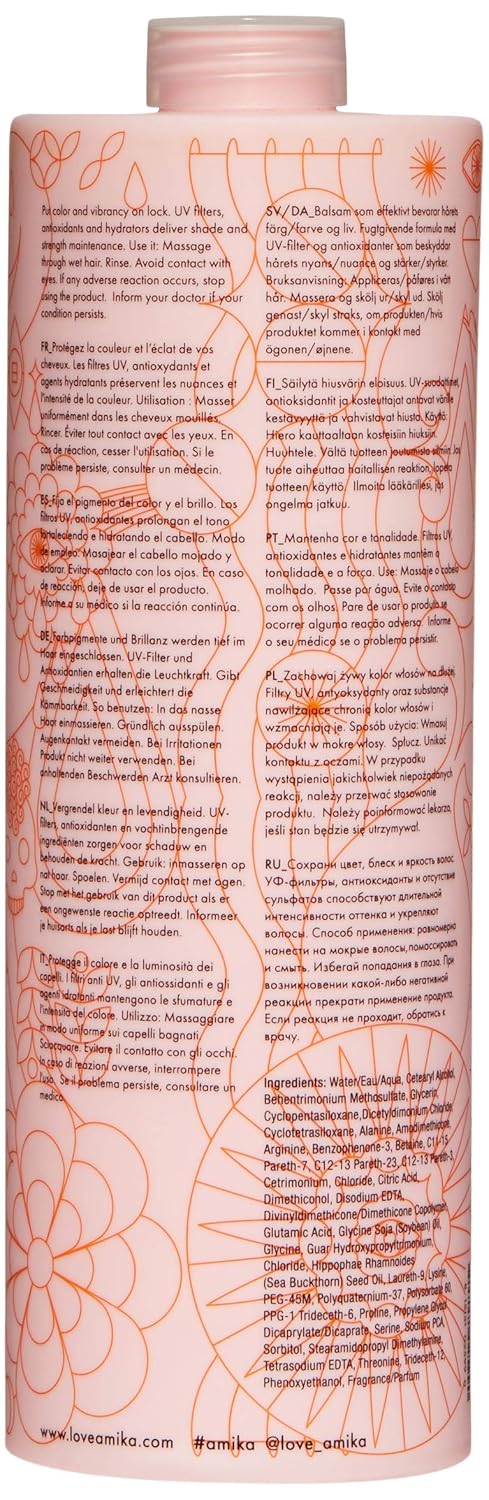 Put color and vibrancy on lock. UV filters,
antioxidants and hydrators deliver shade and
strength maintenance. Use it: Massage
through wet hair. Rinse. Avoid contact with
eyes. If any adverse reaction occurs, stop
using the product. Inform your doctor if your
condition persists.
FR_Protégez la couleur et l'éclat de vos
cheveux. Les filtres UV, antioxydants et
agents hydratants préservent les nuances et
l'intensité de la couleur. Utilisation : Masser
uniformément dans les cheveux mouillés.
Rincer. Éviter tout contact avec les yeux. En
cas de réaction, cesser l'utilisation. Si le
problème persiste, consulter un médecin.
ES_Fija el pigmento del color y el brillo. Los
filtros UV, antioxidantes prolongan el tono
fortaleciendo e hidratando el cabello. Modo
de empleo: Masajear el cabello mojado y
aclarar. Evitar contacto con los ojos. En caso
de reacción, deje de usar el producto.
Informe a su médico si la reacción continúa.
DE_Farbpigmente und Brillanz werden tief im
Haar eingeschlossen. UV-Filter und
Antioxidantien erhalten die Leuchtkraft. Gibt
Geschmeidigkeit und erleichtert die
Kämmbarkeit. So benutzen: In das nasse
Haar einmassieren. Gründlich ausspülen.
Augenkontakt vermeiden. Bei Irritationen
Produkt nicht weiter verwenden. Bei
anhaltenden Beschwerden Arzt konsultieren.
NL_Vergrendel kleur en levendigheid. UV-
filters, antioxidanten en vochtinbrengende
ingrediënten zorgen voor schaduw en
behouden de kracht. Gebruik: inmasseren op
nat haar. Spoelen. Vermijd contact met ogen.
Stop met het gebruik van dit product als er
een ongewenste reactie optreedt. Informeer
je huisarts als je last blijft houden.
IT_Protegge il colore e la luminosità dei
capelli. I filtri anti UV, gli antiossidanti e gli
agenti idratanti mantengono le sfumature e
l'intensità del colore. Utilizzo: Massaggiare
in modo uniforme sui capelli bagnati.
Sciacquare. Evitare il contatto con gli occhi.
In caso di reazioni avverse, interrompere
l'uso. Se il problema persiste, consultare un
medico
SV/DA_Balsam som effektivt bevarar hårets
färg/farve og liv. Fugtgivende formula med
UV-filter og antioxidanter som beskyddar
hårets nyans/nuance og stärker/styrker.
Bruksanvisning: Appliceras/påføres i vått
hår. Massera og skölj ur/skyl ud. Skölj
genast/skyl straks, om produkten/hvis
produktet kommer i kontakt med
ögonen/øjnene.
FI_Säilytä hiusvärin eloisuus. UV-suodattimet,
antioksidantit ja kosteuttajat antavat värille
kestävyyttä ja vahvistavat hiusta. Käyttö:
Hiero kauttaaltaan kosteisiin hiuksiin.
Huuhtele. Vältä tuotteen joutumista silmiin. Jos
tuote aiheuttaa haitallisen reaktion, lopeta
tuotteen käyttö. Ilmoita lääkärillesi, jos
ongelma jatkuu.
PT_Mantenha cor e tonalidade. Filtros UV,
antioxidantes e hidratantes mantêm a
tonalidade e a força. Use: Massaje o cabelo
molhado. Passe por água. Evite o contacto
com os olhos. Pare de usar o produto se
ocorrer alguma reação adversa. Informe
o seu médico se o problema persistir.
PL_Zachowaj żywy kolor włosów na dłużej.
Filtry UV, antyoksydanty oraz substancje
nawilżające chronią kolor włosów i
wzmacniają je. Sposób użycia: Wmasuj
produkt w mokre włosy. Spłucz. Unikać
kontaktu z oczami. W przypadku
wystąpienia jakichkolwiek niepożądanych
reakcji, należy przerwać stosowanie
produktu. Należy poinformować lekarza,
jeśli stan będzie się utrzymywał.
RU_Сохрани цвет, блеск и яркость волос.
УФ-фильтры, антиоксиданты и отсутствие
сульфатов способствуют длительной
интенсивности оттенка и укрепляют
волосы. Способ применения: равномерно
нанести на мокрые волосы, помассировать
и смыть. Избегай попадания в глаза. При
возникновении какой-либо негативной
реакции прекрати применение продукта.
Если реакция не проходит, обратись к
врачу.
Ingredients: Water/Eau/Aqua, Cetearyl Alcohol,
Behentrimonium Methosulfate, Glycerin,
Cyclopentasiloxane, Dicetyldimonium Chloride,
Cyclotetrasiloxane, Alanine, Amodimethicone,
Arginine, Benzophenone-3, Betaine, C11-15
Pareth-7, C12-13 Pareth-23, C12-13 Pareth-3,
Cetrimonium, Chloride, Citric Acid,
Dimethiconol, Disodium EDTA,
Divinyldimethicone/Dimethicone Copolymer,
Glutamic Acid, Glycine Soja (Soybean) Oil,
Glycine, Guar Hydroxypropyltrimonium,
Chloride, Hippophae Rhamnoides
(Sea Buckthorn) Seed Oil, Laureth-9, Lysine,
PEG-45M, Polyquaternium-37, Polysorbate 80,
PPG-1 Trideceth-6, Proline, Propylene Glycol
Dicaprylate/Dicaprate, Serine, Sodium PCA,
Sorbitol, Stearamidopropyl Dimethylamine,
Tetrasodium EDTA, Threonine, Trideceth-12,
Phenoxyethanol, Fragrance/Parfum
www.loveamika.com #amika @love_amika